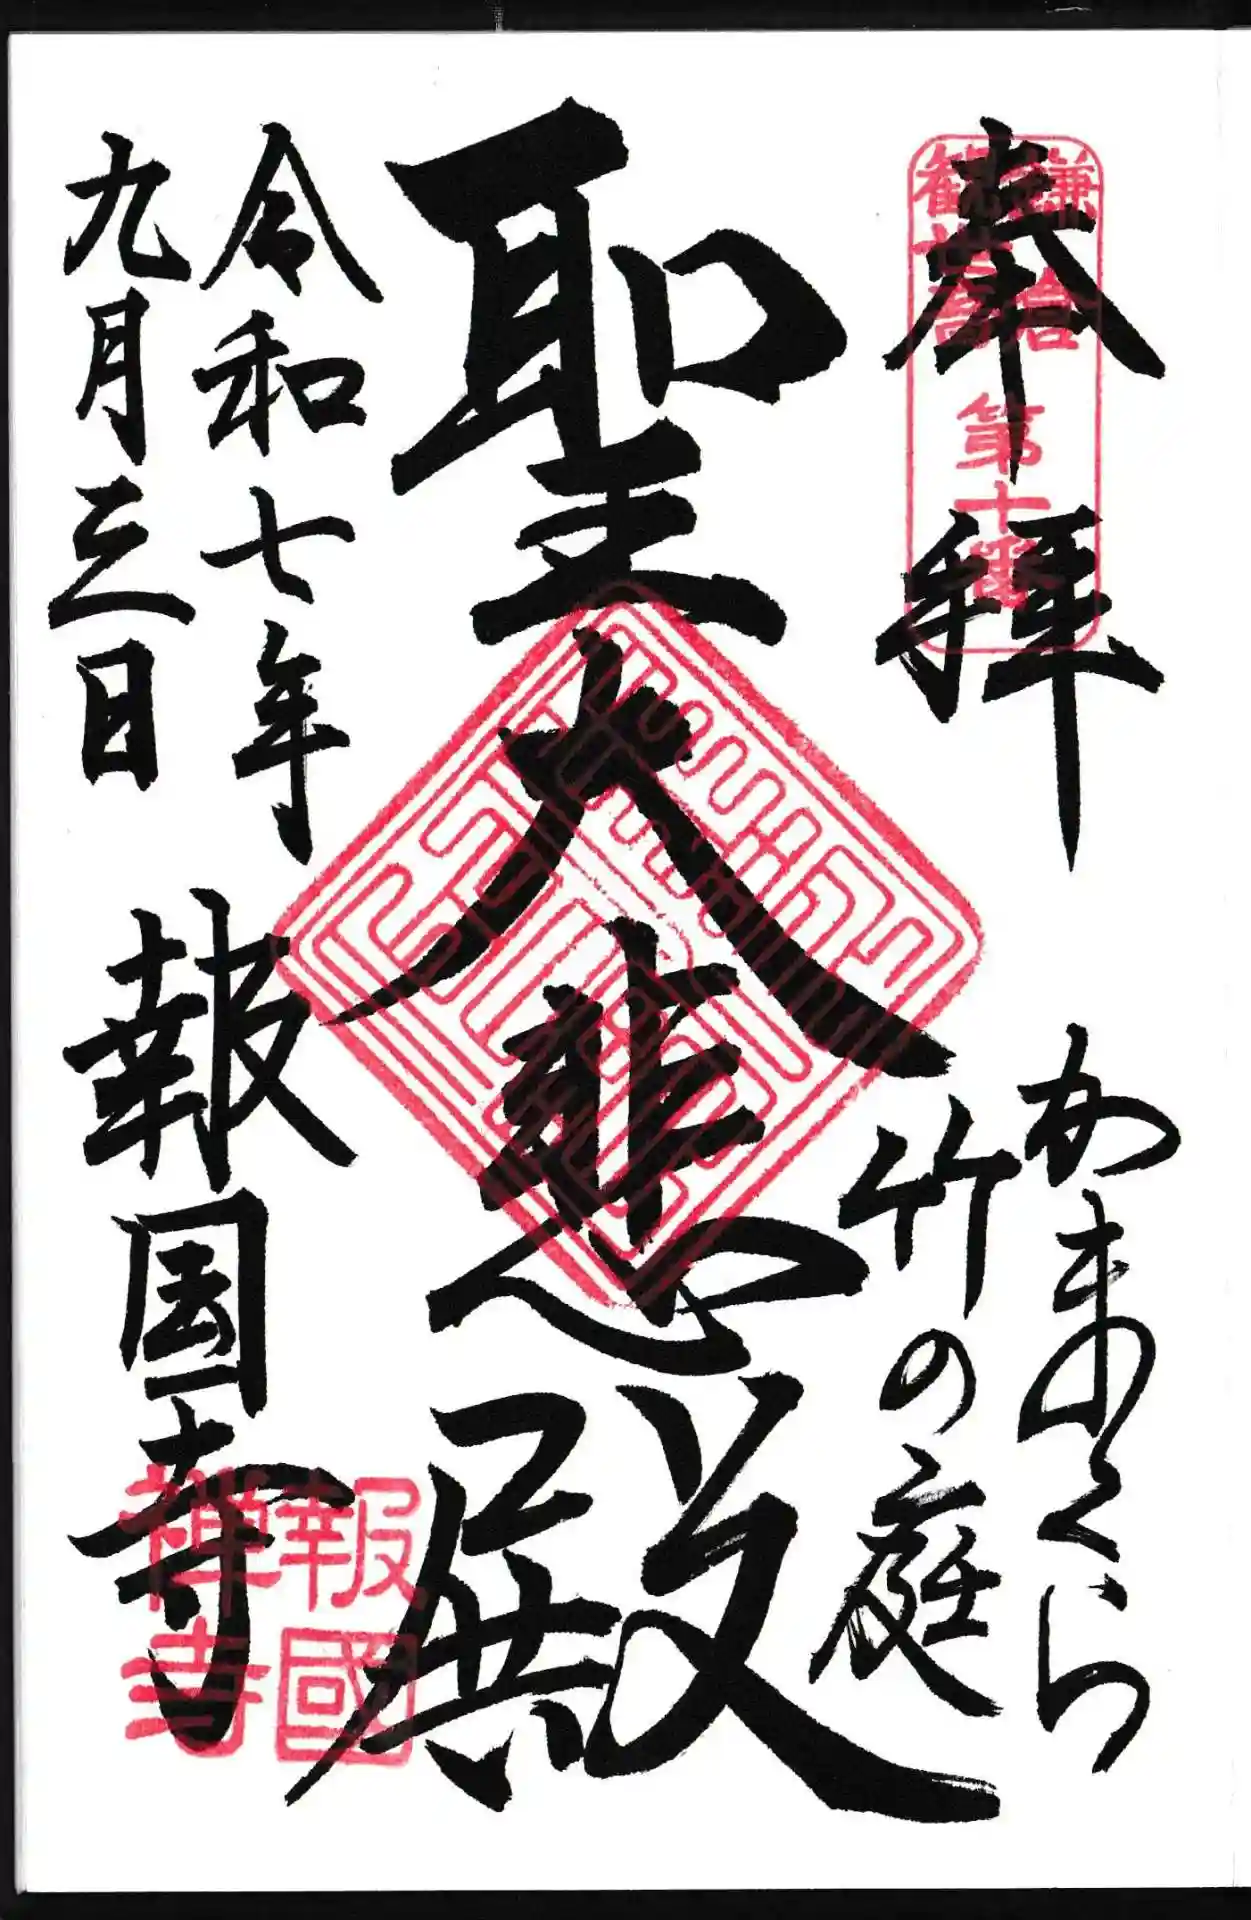 奉拝
鎌倉
観世音
第十番
かまくら
竹の庭
聖大悲殿
令和七年
九月三日
報国寺
報國
禅寺